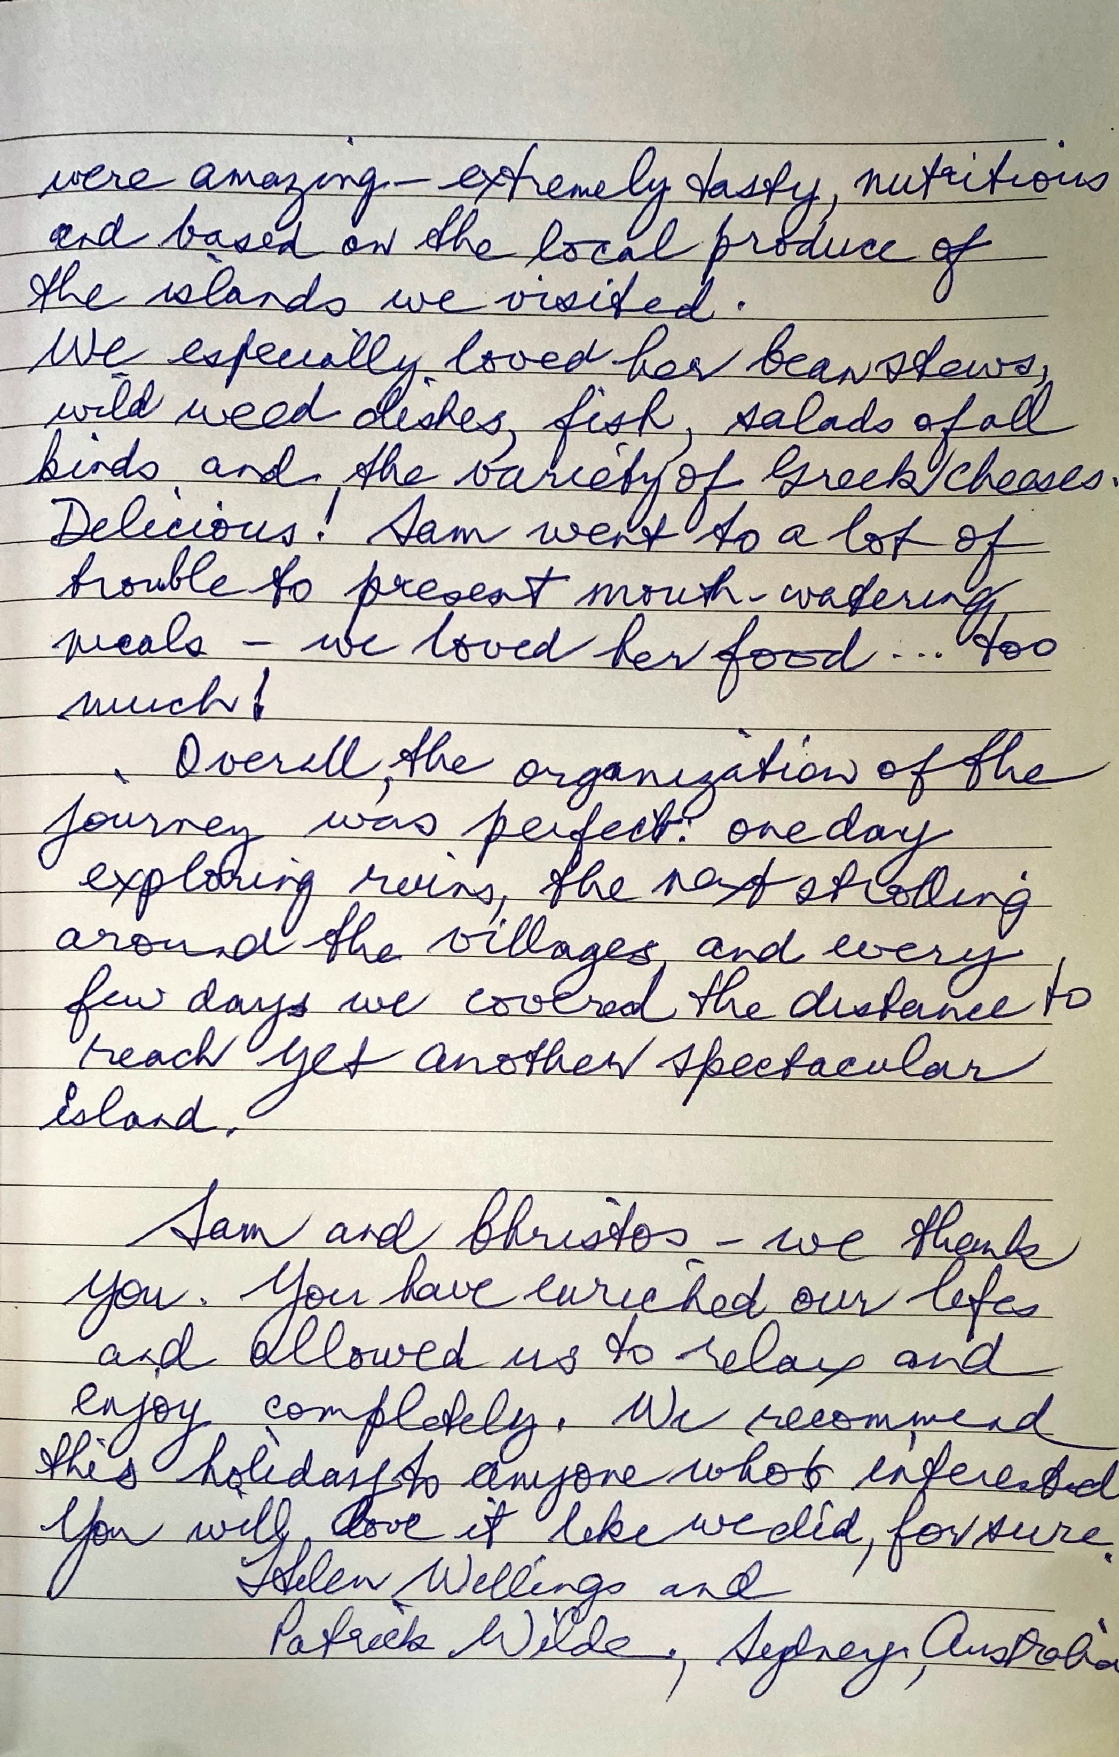 were amazing – extremely tasty, nutritious
and based on the local produce of
the islands we visited.
We especially loved her bean stews,
wild weed dishes, fish, salads of all
kinds and the variety of Greek cheeses.
Delicious! Sam went to a lot of
trouble to present mouth-watering
meals – we loved her food ... too
much!
Overall, the organization of the
journey was perfect: one day
exploring ruins, the next strolling
around the villages, and every
few days we covered the distance to
reach yet another spectacular
island.
Sam and Christos – we thank
you. You have enriched our lifes
and allowed us to relax and
enjoy completely. We recommend
this holiday to anyone who's interested
You will love it like we did, for sure.
Helen Wellings and
Patrick Wilde, Sydney, Australia